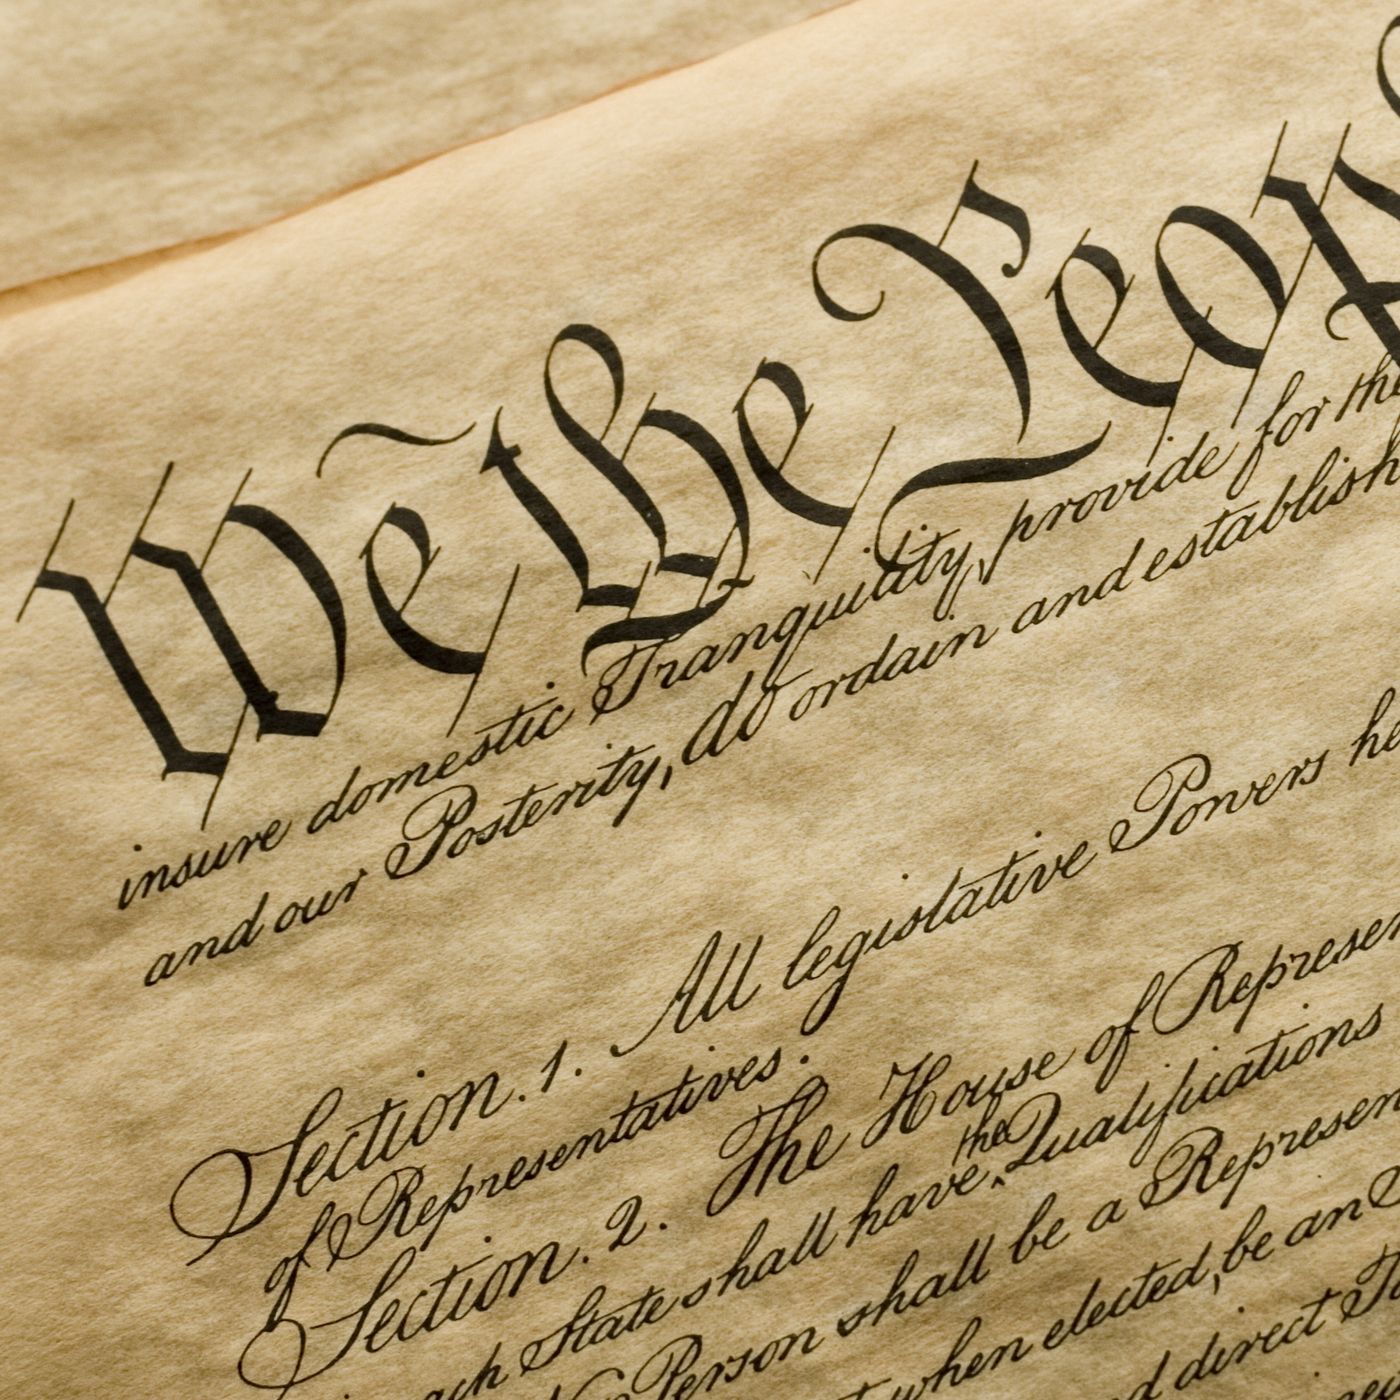 We the Peop
insure domestic Tranquility, provide for the
and our Posterity, do ordain and establish
Section. 1. All legislative Powers he
of Representatives.
Section. 2. The House of Represen
ach State shall have the Qualifications
No Person shall be a Represen
when elected, be an
d direct